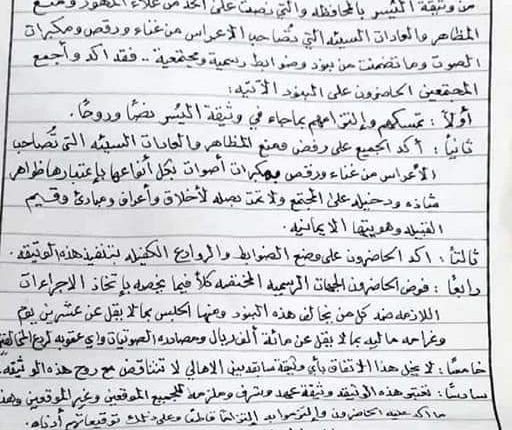 من وثيقة التيسر بالمحافظه والتي نصت على الحد من غلاء المهور ومنع
المظاهر والعادات السيئه التي تصاحب الاعراس من غناء ورقص ومكبرات
الصوت وما تضمنت من بنود وضوابط رسمية ومجتمعية .. فقد اكد وأجمع
المجتمعين الحاضرون على البنود الآتيه:
أولاً: تمسكهم وإلتزامهم بماجاء في وثيقة اليسر نصًا وروحًا.
ثانياً: أكد الجميع على رفض ومنع المظاهر والعادات السيئه التى تصاحب
الأعراس من غناء ورقص ومكبرات أصوات بكل أنواعها بإعتبارها ظواهر
شاذه ودخيله على المجتمع ولا تمت بصله لأخلاق وأعراف ومبادئ وقيم
القبيله وهويتها الايمانيه.
ثالثاً: اكد الحاضرون على وضع الضوابط والروادع الكفيله لتنفيذ هذه الوثيقه.
رابعًا: فوض الحاضرون الجهات الرسميه المختصه كلاً فيما يخصه بإتخاذ الاجراءات
اللازمه ضد كل من يخالف هذه البنود ومنها الحبس بما لا يقل عن عشرين يوم
وغرامه ماليه بما لا يقل عن مائة ألف ريال ومصادره الصوتيات واي عقوبه لردع المخالفين
خامسًا: لا يخل هذا الاتفاق بأي وثيقة سابقه بين الاهالي لا تتناقض مع روح هذه الوثيقه.
سادسًا: تعتبر هذه الوثيقه وثيقة عهد وشرف وملزمة للجميع الموقعين وغير الموقعين وهذا
ما اكد عليه الحاضرون وإلتزموا به إلتزامًا قاطعًا وعلى ذلك توقيعاتهم أدناه.